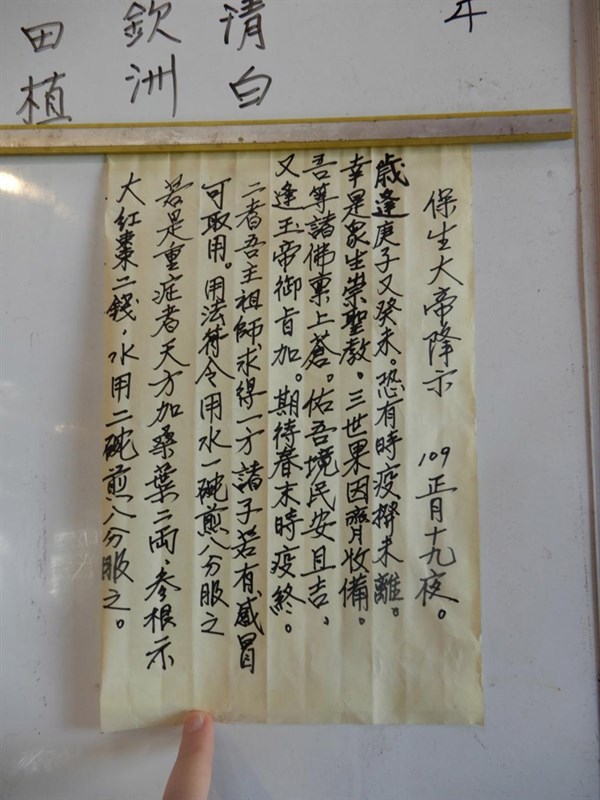 清白
欽洲
田植
保生大帝降示 109正月十九夜。
歲逢庚子又癸未。恐有時疫未離。
幸是衆生崇聖教。三世果因齊收備。
吾等諸佛稟上蒼。佑吾境民安且吉、
又逢玉帝御旨加。期待春末時疫終。
二者吾主祖師求得一方諸子若有感冒
可取用。用法符令用水一碗煎八分服之
若是重症者天方加桑葉二両、参根示
大紅棗二錢、水用二碗煎八分服之。